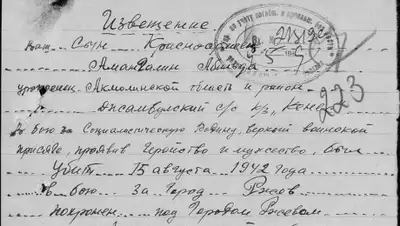 Извещение
Ваш Сын Красноармеец
Аманжалин
уроженец Акмолинской области и район
Джамбулский с/с к/з
В бою за Социалистическую Родину, верный воинской
присяге, проявив геройство и мужество, был
убит 15 августа 1942 года
в бою за город Ржев
похоронен под Городом Ржевом
223